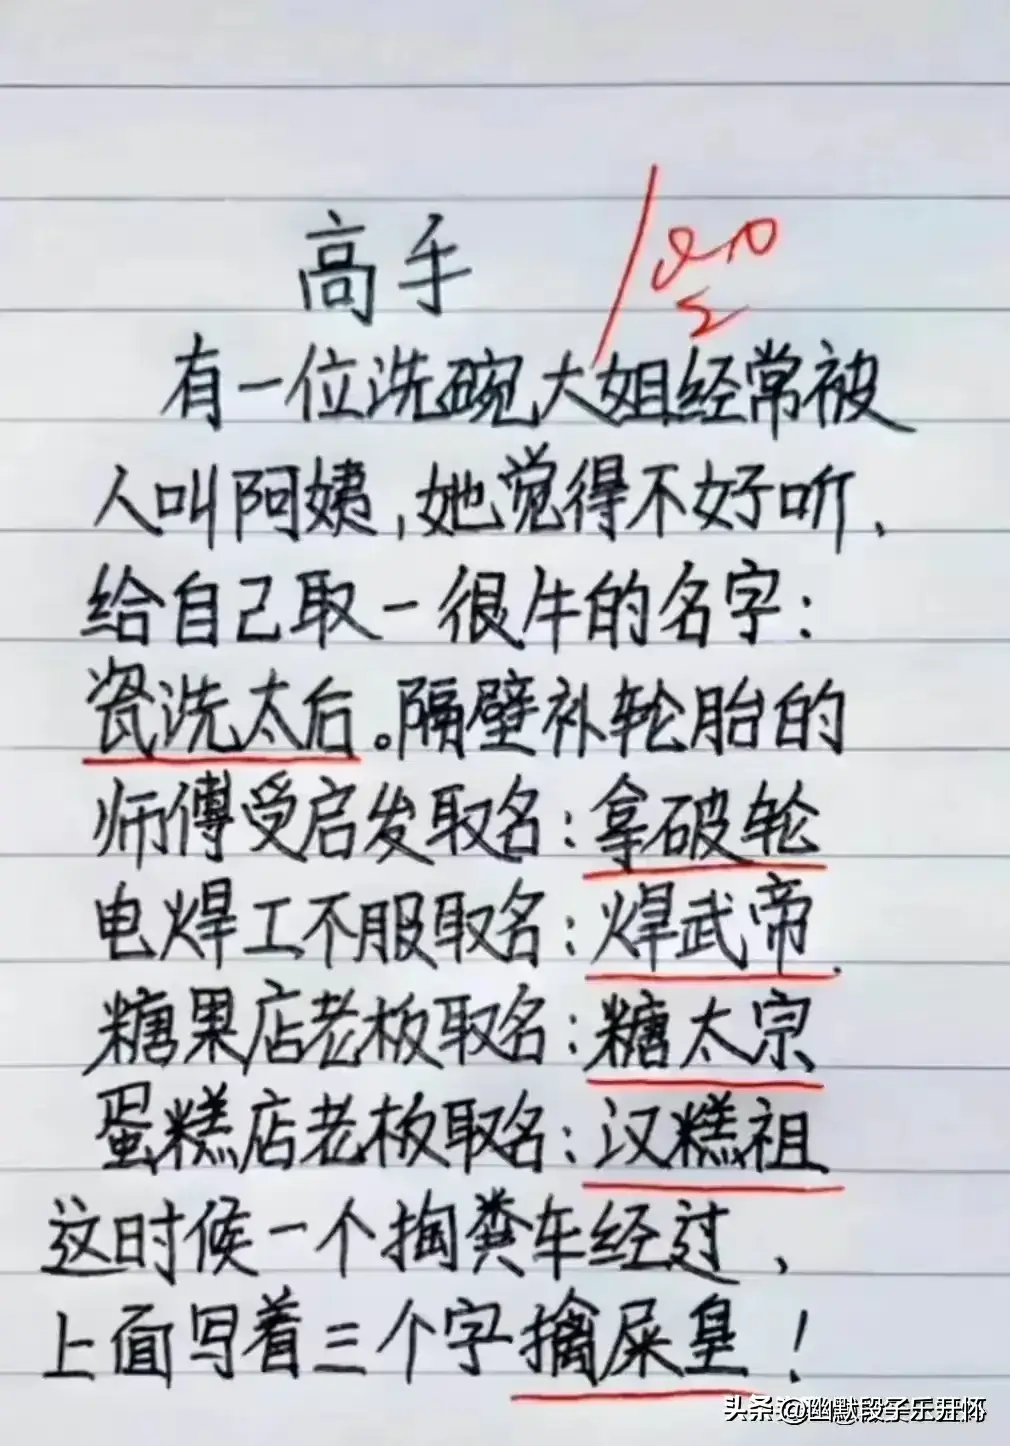 高手
100
有一位洗碗大姐经常被
人叫阿姨,她觉得不好听、
给自己取一很牛的名字:
瓷洗太后。隔壁补轮胎的
师傅受启发取名:拿破轮
电焊工不服取名:焊武帝.
糖果店老板取名:糖太宗
蛋糕店老板取名:汉糕祖
这时候一个掏粪车经过、
上面写着三个字擒屎皇!
头条@幽默段子乐开怀